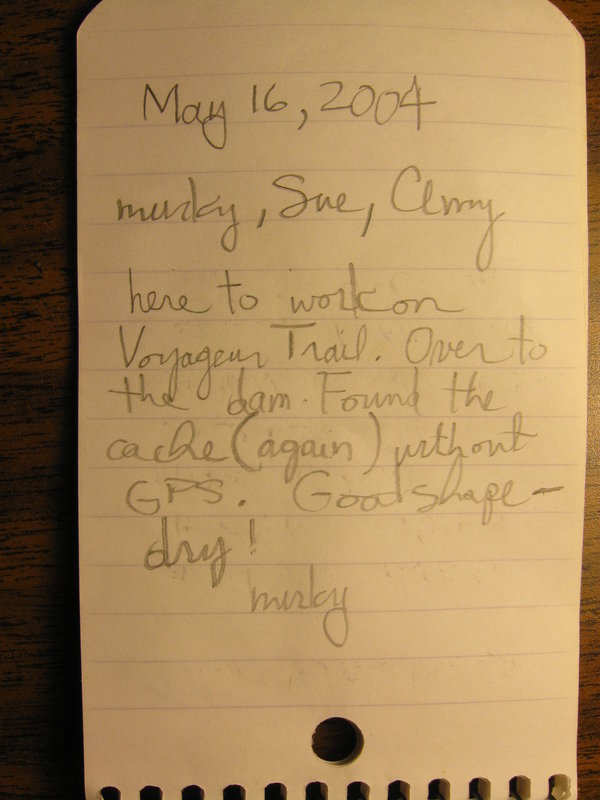 May 16, 2004
murky, Sue,
here to work on
Voyageur Trail. Over to
the dam. Found the
cache (again) without
GPS. Good shape -
dry!
murky